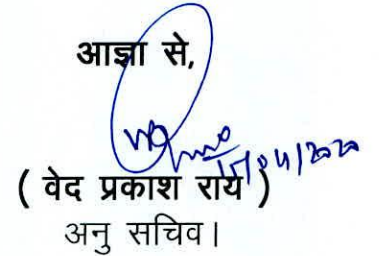 आज्ञा से,
15/04/2020
( वेद प्रकाश राय )
अनु सचिव।